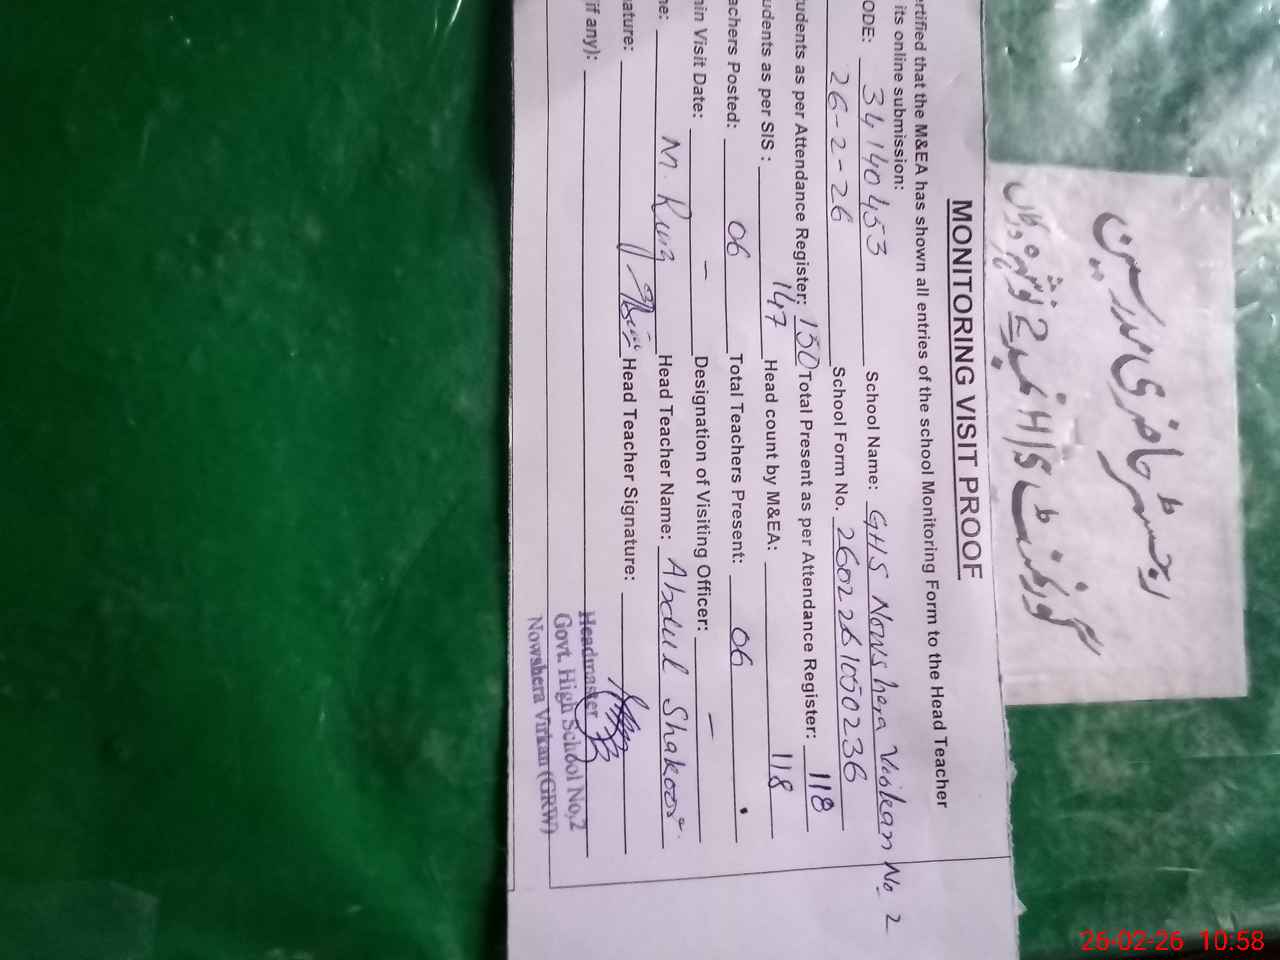 رجسٹر حاضری مدرسین
گورنمنٹ H/S نمبر 2 نوشہرہ ورکاں
MONITORING VISIT PROOF
ertified that the M&EA has shown all entries of the school Monitoring Form to the Head Teacher
its online submission:
ODE: 34140453 School Name: GHS Nowshera Virkan No. 2
26-2-26 School Form No. 26022610050236
tudents as per Attendance Register: 150 Total Present as per Attendance Register: 118
udents as per SIS : 147 Head count by M&EA: 118
achers Posted: 06 Total Teachers Present: 06
in Visit Date: - Designation of Visiting Officer: -
ne: M. Head Teacher Name: Abdul Shakoor
ature: Head Teacher Signature:
if any):
Headmaster
Govt. High School No,2
Nowshera Virkan (GRW)
26-02-26 10:58